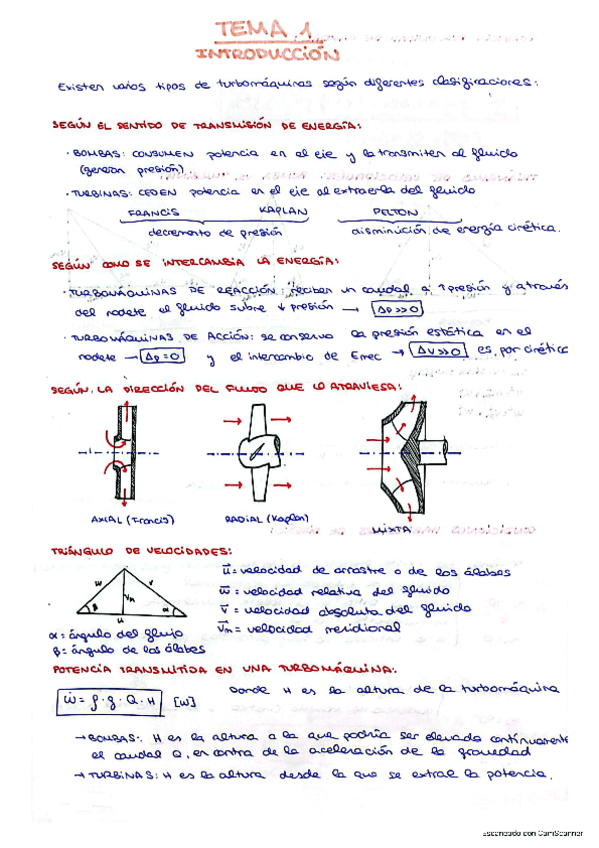 TEMA 1
INTRODUCCIÓN
Existen varios tipos de turbomáquinas según diferentes clasificaciones:
SEGÚN EL SENTIDO DE TRANSMISIÓN DE ENERGÍA:
· BOMBAS: CONSUMEN potencia en el eje y la transmiten al fluido
(generan presión)
· TURBINAS: CEDEN potencia en el eje al extraerla del fluido
FRANCIS KAPLAN PELTON
decremento de presión disminución de energía cinética.
SEGÚN COMO SE INTERCAMBIA LA ENERGÍA:
· TURBOMÁQUINAS DE REACCIÓN: reciben un caudal a ↑presión y a través
del rodete el fluido subre ↓ presión → Δp>>0
· TURBOMÁQUINAS DE ACCIÓN: se conserva la presión estática en el
rodete → Δp=0 y el intercambio de Emec → Δv>>0 es por cinética
SEGÚN LA DIRECCIÓN DEL FLUIDO QUE LO ATRAVIESA:
AXIAL (Francis) RADIAL (Kaplan) MIXTA
TRIÁNGULO DE VELOCIDADES:
w v Vm β α u
u⃗ = velocidad de arrastre o de los álabes
w⃗ = velocidad relativa del fluido
v⃗ = velocidad absoluta del fluido
v⃗m = velocidad meridional
α = ángulo del flujo
β = ángulo de los álabes
POTENCIA TRANSMITIDA EN UNA TURBOMÁQUINA:
Ẇ = ρ·g·Q·H [W] Donde H es la altura de la turbomáquina
→ BOMBAS: H es la altura a la que podría ser elevado continuamente
el caudal Q, en contra de la aceleración de la gravedad
→ TURBINAS: H es la altura desde la que se extrae la potencia.
Escaneado con CamScanner